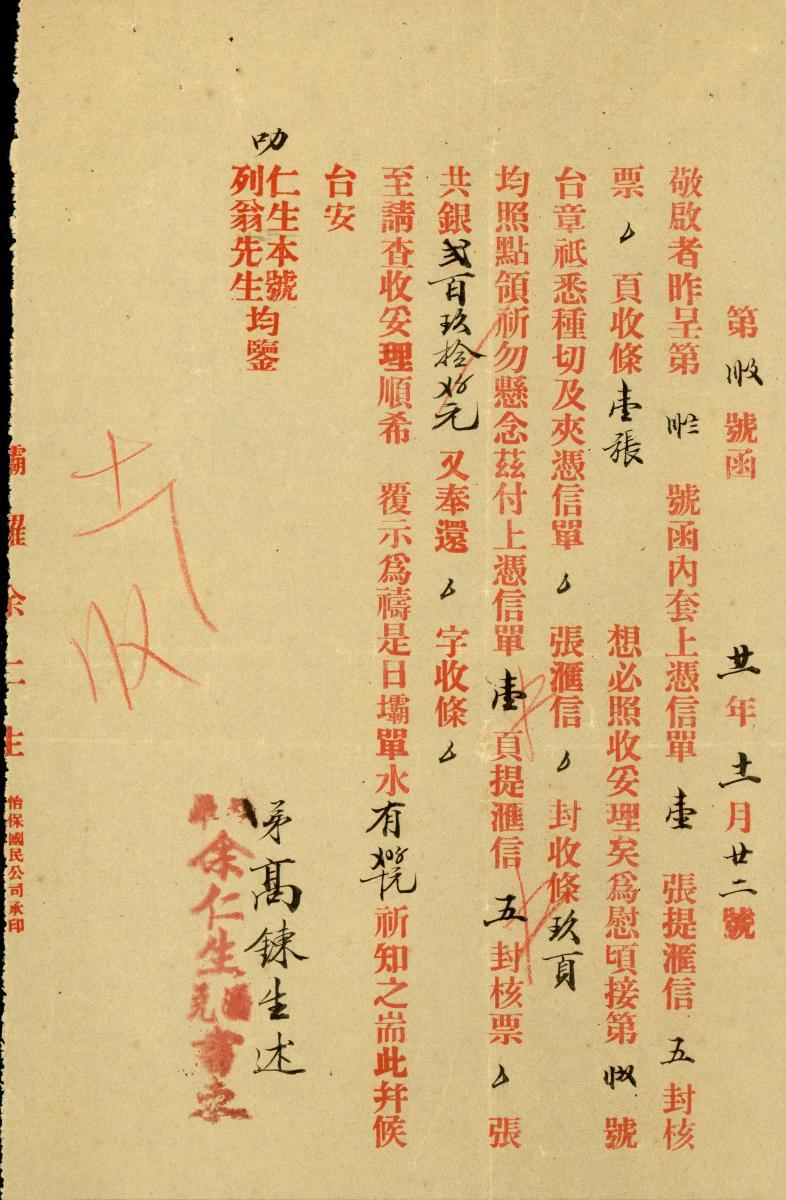 第 號函 廿一年十二月廿二號
敬啟者昨呈第 號函內套上憑信單壹張提滙信五封核
票 頁收條壹張 想必照收妥理矣為慰頃接第 號
台章祗悉種切及夾憑信單 張滙信 封收條玖頁
均照點領祈勿懸念茲付上憑信單壹頁提滙信五封核票 張
共銀貳百玖拾 元 又奉還 字收條
至請查收妥理順希 覆示為禱是日壩單水有 祈知之耑此幷候
台安
叻
仁生本號
列翁先生
均鑒
弟高鍊生述
余仁生 書柬
壩羅余仁生
怡保國民公司承印